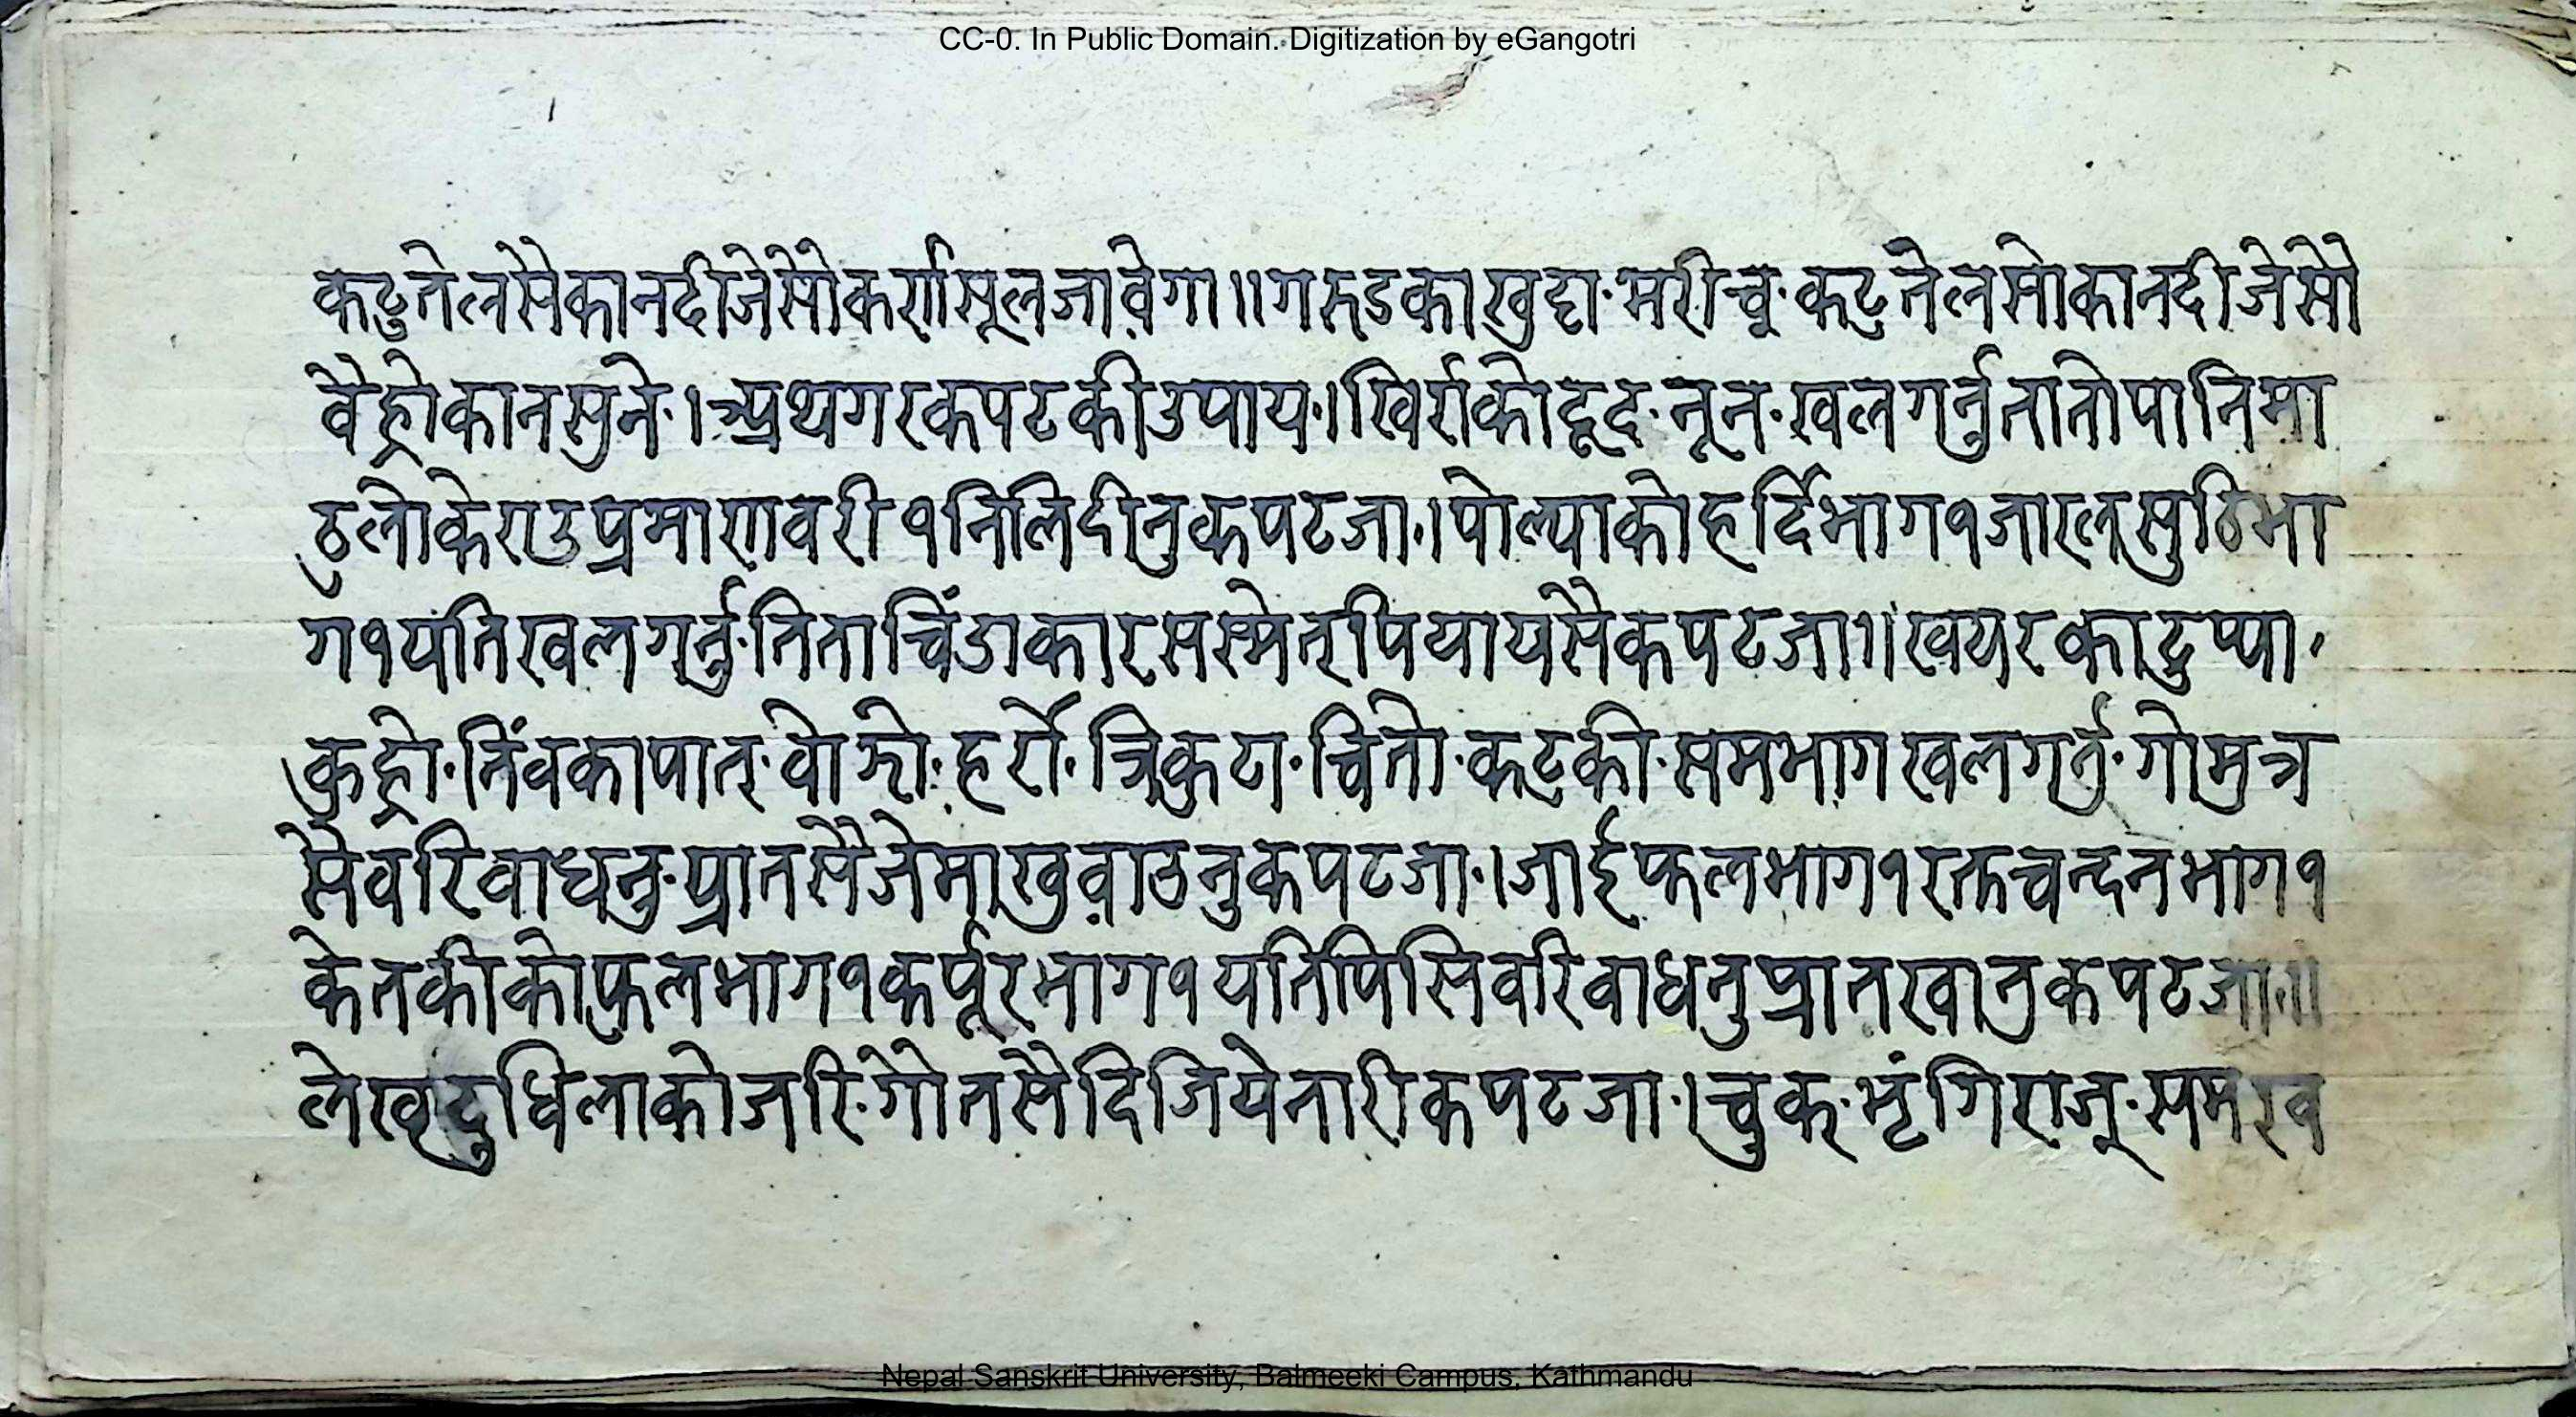 CC-0. In Public Domain. Digitization by eGangotri
कटुतेलसैकानदीजेसोकर्णसूलजावेगा॥गरुडकाखुट्टा·मरीच्च·कटुतेलसोकानदीजेसो
वैह्रोकानसुने·।अथगरकपटकीउपाय·।खिर्राकोदूद·नून·खलगर्नुतातोपानिमा
ठुलोकेराउप्रमाणवरी१निलिदीनुकपटजा·।पोल्याकोहर्दिभाग१जारलसुठिभा
ग१यतिखलगर्नु·तिताचिंडाकारससमेतपियायसैकपटजा॥खयरकाटुप्पा·
कुह्रो·निंवकापात·वोझो·हर्रो·त्रिकुटा·चितो·कटुकी·समभागखलगर्नु·गोमुत्र
सैवरिवाधनु·प्रातसैजेमाखुवाउनुकपटजा·।जाईफलभाग१रक्तचन्दनभाग१
केतकीकोफुलभाग१कर्पूरभाग१यतिपिसिवरिवाधनुप्रातखानुकपटजा॥
दुधिलाकोजरि·गोतसैदिजियेनारीकपटजा·।चुक·भृंगिराज·समखव
Nepal Sanskrit University, Balmeeki Campus, Kathmandu